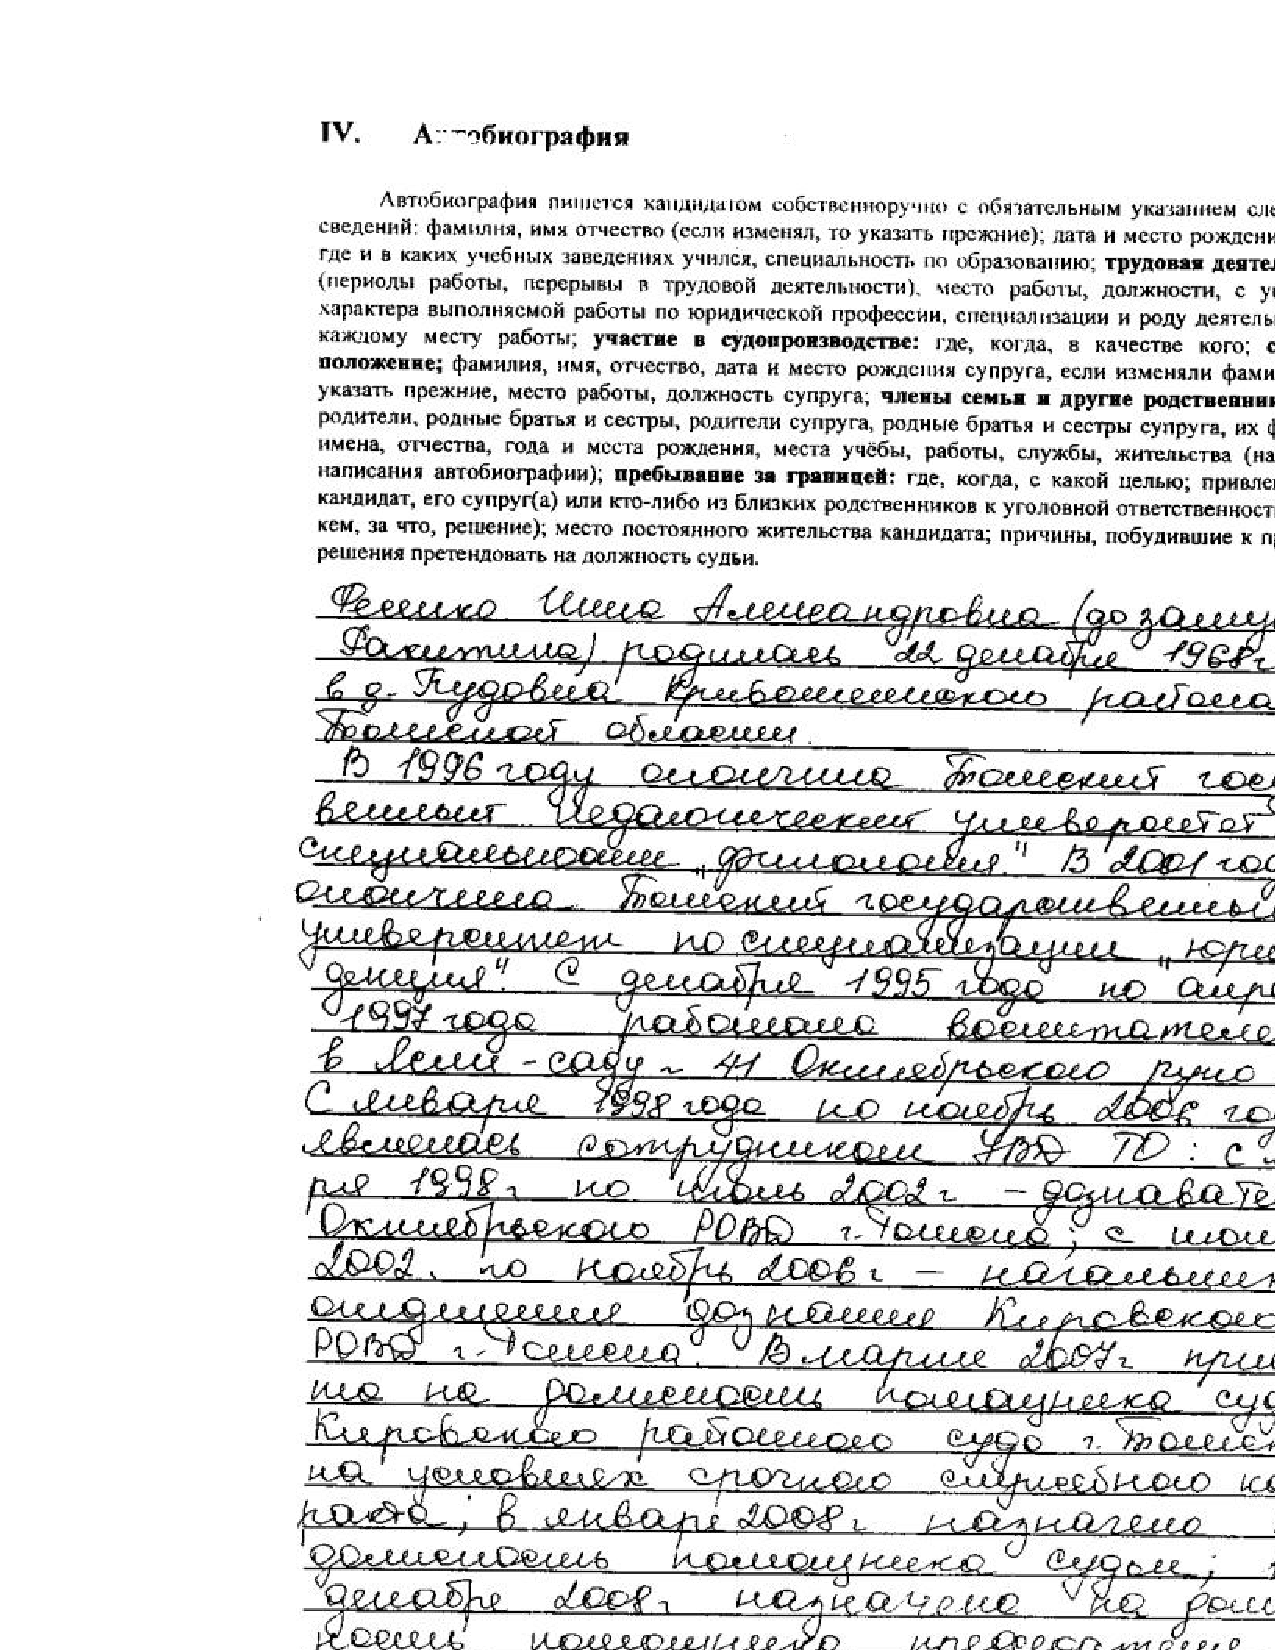 IV. Автобиография
Автобиография пишется кандидатом собственноручно с обязательным указанием сле
сведений: фамилия, имя отчество (если изменял, то указать прежние); дата и место рождени
где и в каких учебных заведениях учился, специальность по образованию; трудовая деятел
(периоды работы, перерывы в трудовой деятельности), место работы, должности, с у
характера выполняемой работы по юридической профессии, специализации и роду деятель
каждому месту работы; участие в судопроизводстве: где, когда, в качестве кого; с
положение; фамилия, имя, отчество, дата и место рождения супруга, если изменяли фами
указать прежние, место работы, должность супруга; члены семьи и другие родственник
родители, родные братья и сестры, родители супруга, родные братья и сестры супруга, их ф
имена, отчества, года и места рождения, места учёбы, работы, службы, жительства (на
написания автобиографии); пребывание за границей: где, когда, с какой целью; привле
кандидат, его супруг(а) или кто-либо из близких родственников к уголовной ответственност
кем, за что, решение); место постоянного жительства кандидата; причины, побудившие к п
решения претендовать на должность судьи.
Александровна (до заму
Ракитина) родилась 22 декабря 1968г
в д. Пудовка Кривошеинского района
Томской области.
В 1996 году окончила Томский гос
венный педагогический университет
специальности „филология". В 2001 го
окончила Томский государственный
университет по специализации „юри
денция". С декабря 1995 года по апре
1997 года работала воспитателе
в ясли-саду 41 Октябрьского
С января 1998 года по ноябрь 2006 го
являлась сотрудником УВД ТО: с
ря 1998г по июль 2002г - дознавате
Октябрьского РОВД г. Томска; с июл
2002. по ноябрь 2006г - начальник
отделения дознания Кировского
РОВД г. Томска. В марте 2007г при
та на должность помощника су
Кировского районного суда г. Томск
на условиях срочного служебного к
ракта; в январе 2008г. назначена
должность помощника судьи;
декабре 2008г назначена на дол
ность помощника председателя